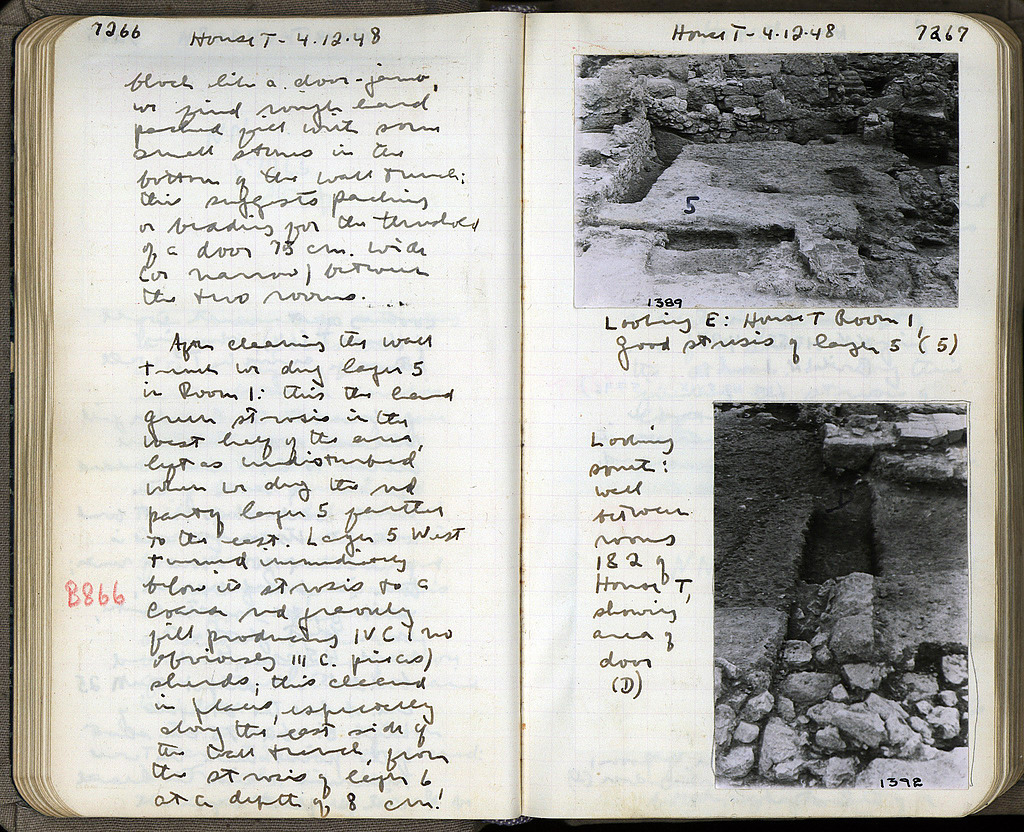 7266
House T - 4.12.48
block like a door-jamb,
we find rough hard
packed fill with some
small stones in the
bottom of the wall trench:
this suggests packing
or bedding for the threshold
of a door 75 cm. wide
(or narrow) between
the two rooms. . . .
After cleaning the wall
trench we dig layer 5
in Room 1: this the hard
green strosis in the
west half of the area,
left as undisturbed
when we dug the red
party layer 5 further
to the east. Layer 5 West
turned immediately
below its strosis to a
B866
coarse red gravelly
fill producing IV C (no
obviously III C. pieces)
sherds; this cleaned
in places, especially
along the east side of
the wall trench, from
the strosis of layer 6
at a depth of 8 cm!
House T - 4.12.48
7267
5
1389
Looking E: House T Room 1,
good strosis of layer 5 (5)
Looking
south:
wall
between
rooms
1&2 of
House T,
showing
area of
door
(D)
1392